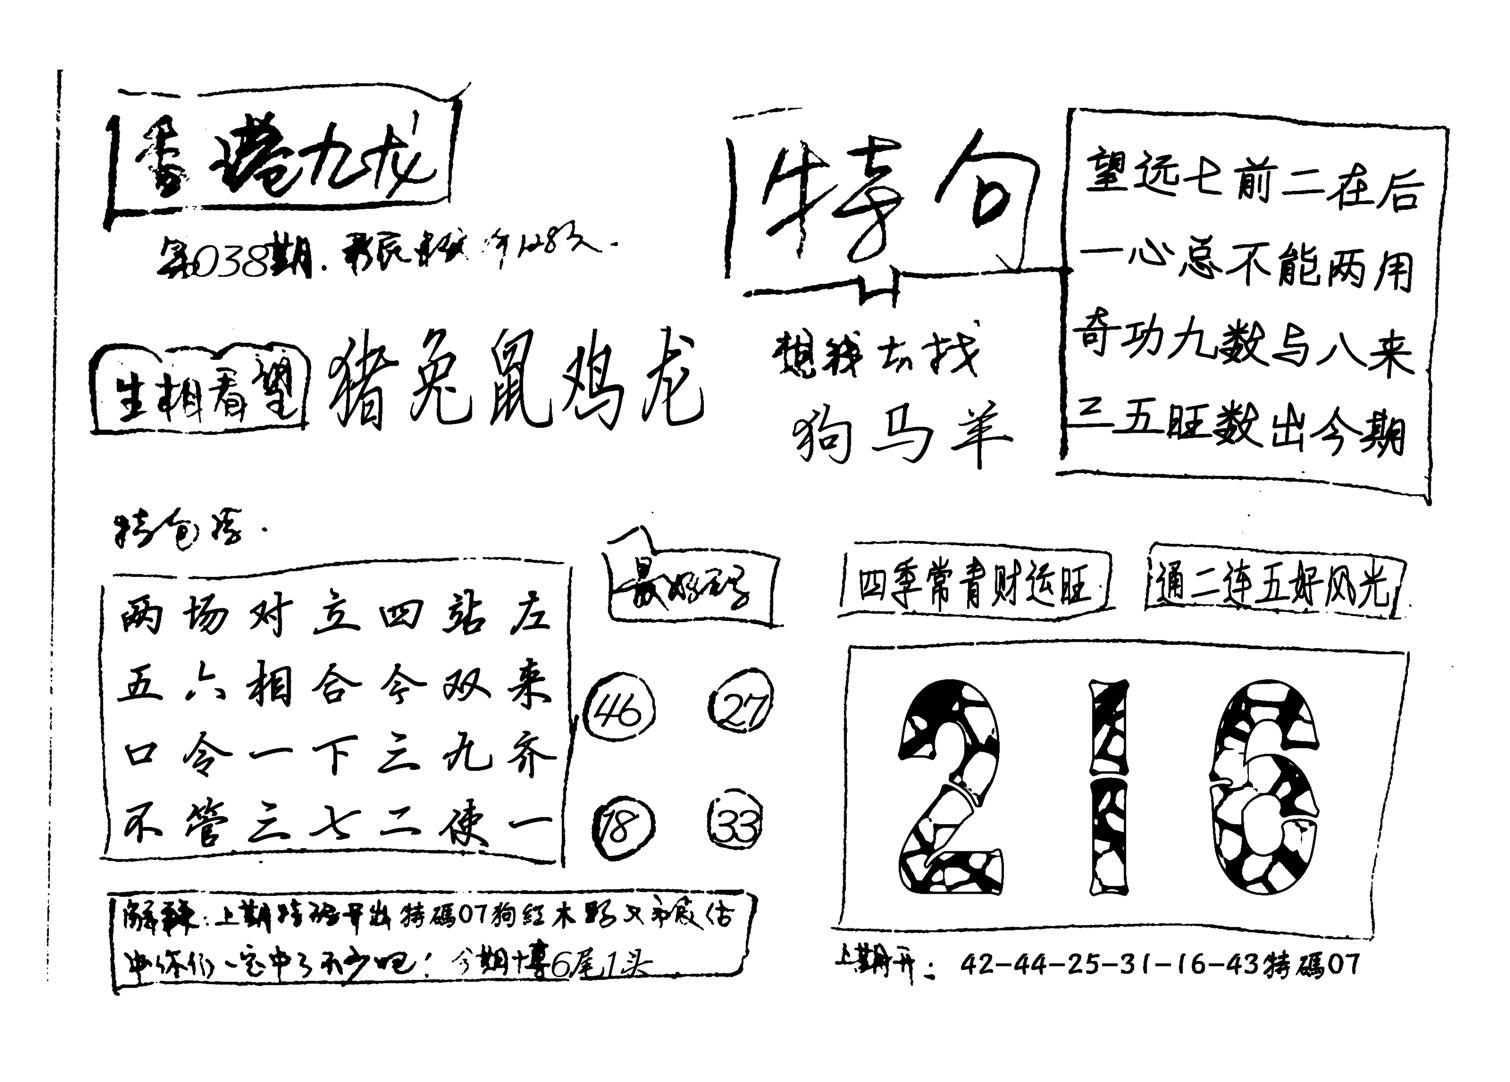 香港九龙
第038期.
生相看望
猪兔鼠鸡龙
特句
想我去找
狗马羊
望远七前二在后
一心总不能两用
奇功九数与八来
三五旺数出今期
特包
两场对立四站左
五六相合今双来
口令一下三九齐
不管三七二使一
最好码
46 27
18 33
四季常青财运旺
通二连五好风光
216
解释:上期特码开出特碼07狗红木
中你们一定中了不少吧!今期博6尾1头
上期开: 42-44-25-31-16-43特碼07